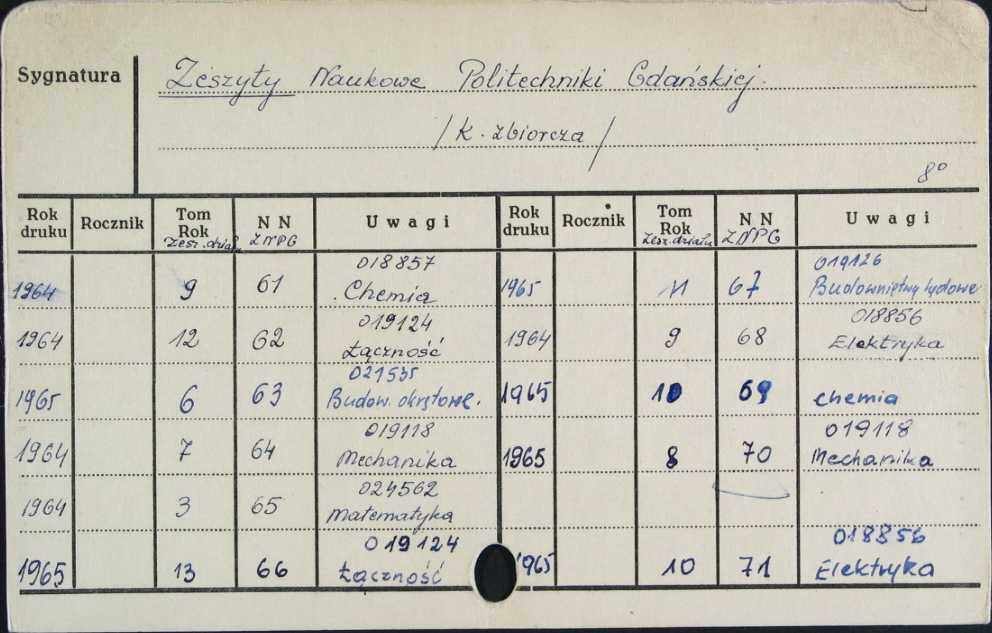 Sygnatura
Zeszyty Naukowe Politechniki Gdańskiej.
/K. zbiorcza/
8°
Rok druku Rocznik Tom Rok Zesz. działu NN ZNPG Uwagi Rok druku Rocznik Tom Rok Zesz. działu NN ZNPG Uwagi
1964 9 61 018857 Chemia 1965 11 67 019126 Budownictwo lądowe
1964 12 62 019124 Łączność 1964 9 68 018856 Elektryka
1965 6 63 021535 Budow. okrętowe. 1965 10 69 chemia
1964 7 64 019118 Mechanika 1965 8 70 019118 Mechanika
1964 3 65 024562 Matematyka
1965 13 66 019124 Łączność 1965 10 71 018856 Elektryka